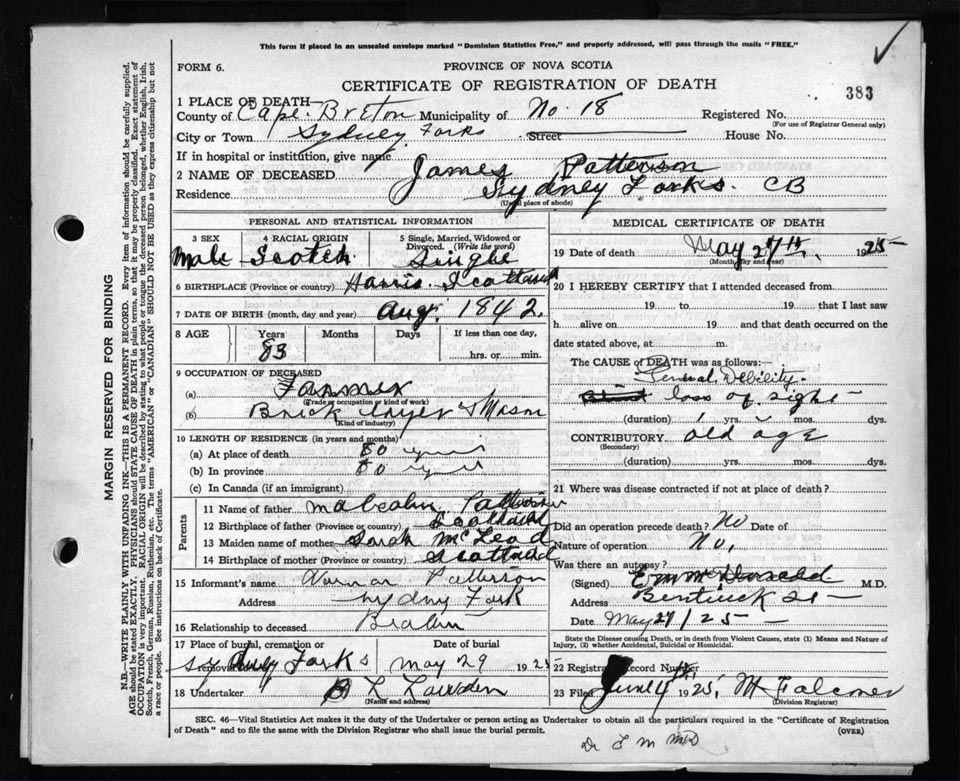 This form if placed in an unsealed envelope marked "Dominion Statistics Free," and properly addressed, will pass through the mails "FREE."
FORM 6.
PROVINCE OF NOVA SCOTIA
CERTIFICATE OF REGISTRATION OF DEATH
383
1 PLACE OF DEATH
County of Cape Breton Municipality of No 18 Registered No.
(For use of Registrar General only)
City or Town Sydney Forks Street House No.
If in hospital or institution, give name
2 NAME OF DECEASED James Patterson
Residence Sydney Forks. CB
(Usual place of abode)
PERSONAL AND STATISTICAL INFORMATION
3 SEX Male
4 RACIAL ORIGIN Scotch
5 Single, Married, Widowed or Divorced. (Write the word) Single
6 BIRTHPLACE (Province or country) Harris. Scotland
7 DATE OF BIRTH (month, day and year) Aug. 1842.
8 AGE Years 83 Months Days If less than one day, hrs. or min.
9 OCCUPATION OF DECEASED
(a) Farmer
(Trade or occupation or kind of work)
(b) Brick layer & Mason
(Kind of industry)
10 LENGTH OF RESIDENCE (in years and months)
(a) At place of death 80 years
(b) In province 80 years
(c) In Canada (if an immigrant)
Parents
11 Name of father Malcolm Patterson
12 Birthplace of father (Province or country) Scotland
13 Maiden name of mother Sarah McLeod
14 Birthplace of mother (Province or country) Scotland
15 Informant's name Norman Patterson
Address Sydney Fork
16 Relationship to deceased
17 Place of burial, cremation or removal Sydney Forks
Date of burial May 29 1925
18 Undertaker
(Name and address)
MEDICAL CERTIFICATE OF DEATH
19 Date of death May 27th, 1925
(Month, day and year)
20 I HEREBY CERTIFY that I attended deceased from
19 to 19 that I last saw
h alive on 19 and that death occurred on the
date stated above, at m.
The CAUSE of DEATH was as follows:—
General Debility.
loss of sight
(duration) yrs. mos. dys.
CONTRIBUTORY old age
(Secondary)
(duration) yrs. mos. dys.
21 Where was disease contracted if not at place of death?
Did an operation precede death? No Date of
Nature of operation No.
Was there an autopsy?
(Signed) M.D.
Address Bentinck St
Date May 29/25
State the Disease causing Death, or in death from Violent Causes, state (1) Means and Nature of
Injury, (2) whether Accidental, Suicidal or Homicidal.
22 Registrar Record Number
23 Filed June 4th 1925 M Falconer
(Division Registrar)
SEC. 46—Vital Statistics Act makes it the duty of the Undertaker or person acting as Undertaker to obtain all the particulars required in the "Certificate of Registration
of Death" and to file the same with the Division Registrar who shall issue the burial permit.
(OVER)
MARGIN RESERVED FOR BINDING
N.B.—WRITE PLAINLY WITH UNFADING INK—THIS IS A PERMANENT RECORD. Every item of information should be carefully supplied.
AGE should be stated EXACTLY. PHYSICIANS should STATE CAUSE OF DEATH in plain terms, so that it may be properly classified. Exact statement of
OCCUPATION is very important. RACIAL ORIGIN will be described by stating to what people or tongue the deceased person belonged, whether English, Irish,
Scotch, French, German, Russian, Ruthenian, etc. The terms "AMERICAN" or "CANADIAN" SHOULD NOT BE USED as they express citizenship but not
a race or people. See instructions on back of Certificate.